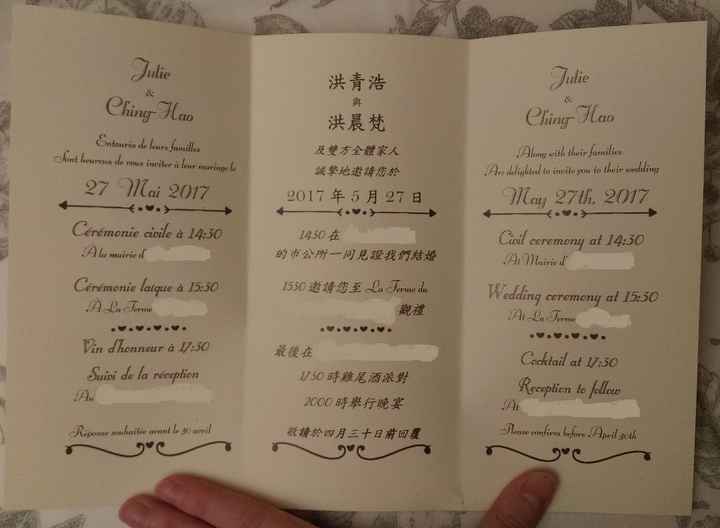 Julie
&
Ching-Hao
Entourés de leurs familles
Sont heureux de vous inviter à leur mariage le
27 Mai 2017
Cérémonie civile à 14:30
A la mairie d'
Cérémonie laïque à 15:30
A La Ferme
Vin d'honneur à 17:30
Suivi de la réception
Au
Réponse souhaitée avant le 30 avril
洪青浩
與
洪晨梵
及雙方全體家人
誠摯地邀請您於
2017 年 5 月 27 日
1430 在
的市公所一同見證我們結婚
1530 邀請您至 La Ferme du
觀禮
最後在
1730 時雞尾酒派對
2000 時舉行晚宴
敬請於四月三十日前回覆
Julie
&
Ching-Hao
Along with their families
Are delighted to invite you to their wedding
May 27th, 2017
Civil ceremony at 14:30
At Mairie d'
Wedding ceremony at 15:30
At La Ferme
Cocktail at 17:30
Reception to follow
At
Please confirm before April 30th